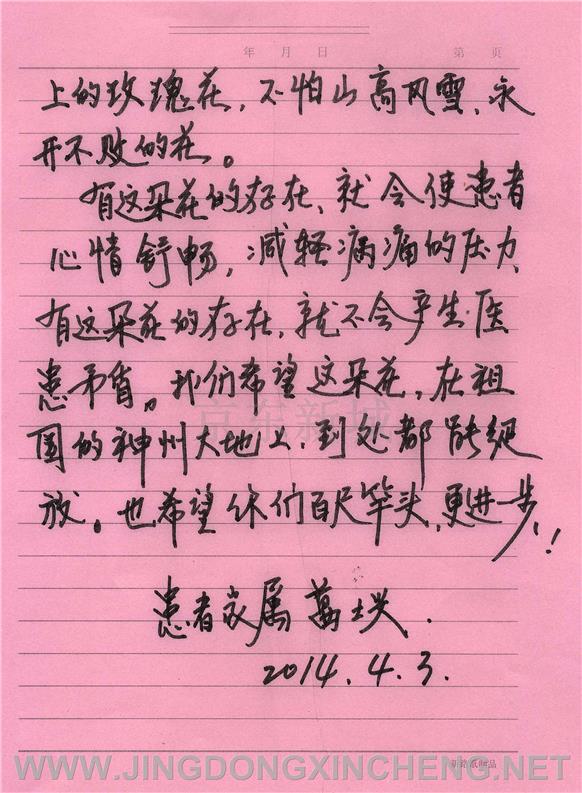 年 月 日 第 页
上的玫瑰花,不怕山高风雪、永
开不败的花。
有这朵花的存在、就会使患者
心情舒畅,减轻病痛的压力、
有这朵花的存在、就不会产生医
患矛盾。我们希望这朵花,在祖
国的神州大地上、到处都能绽
放。也希望你们百尺竿头、更进一步!
京东新城
患者家属
2014.4.3.
WWW.JINGDONGXINCHENG.NET